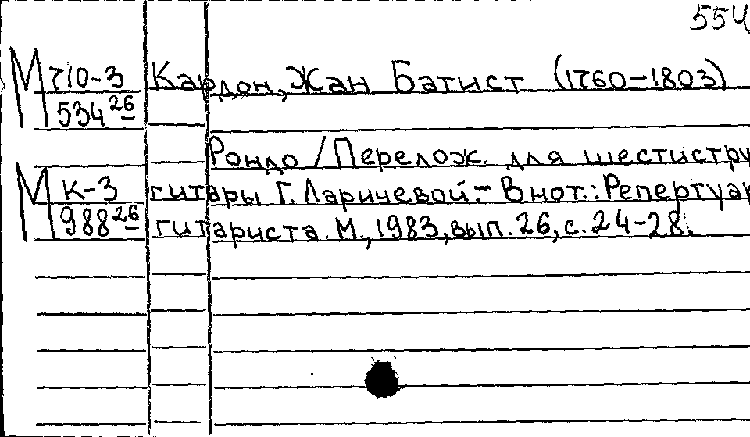 554
М 710-3 Кардон, Жан Батист (1760-1803)
534 26
Рондо / Перелож. для шестистру
М К-3 гитары Г. Ларичевой. - В нот.: Репертуар
988 26 гитариста. М., 1983, вып. 26, с. 24-28.